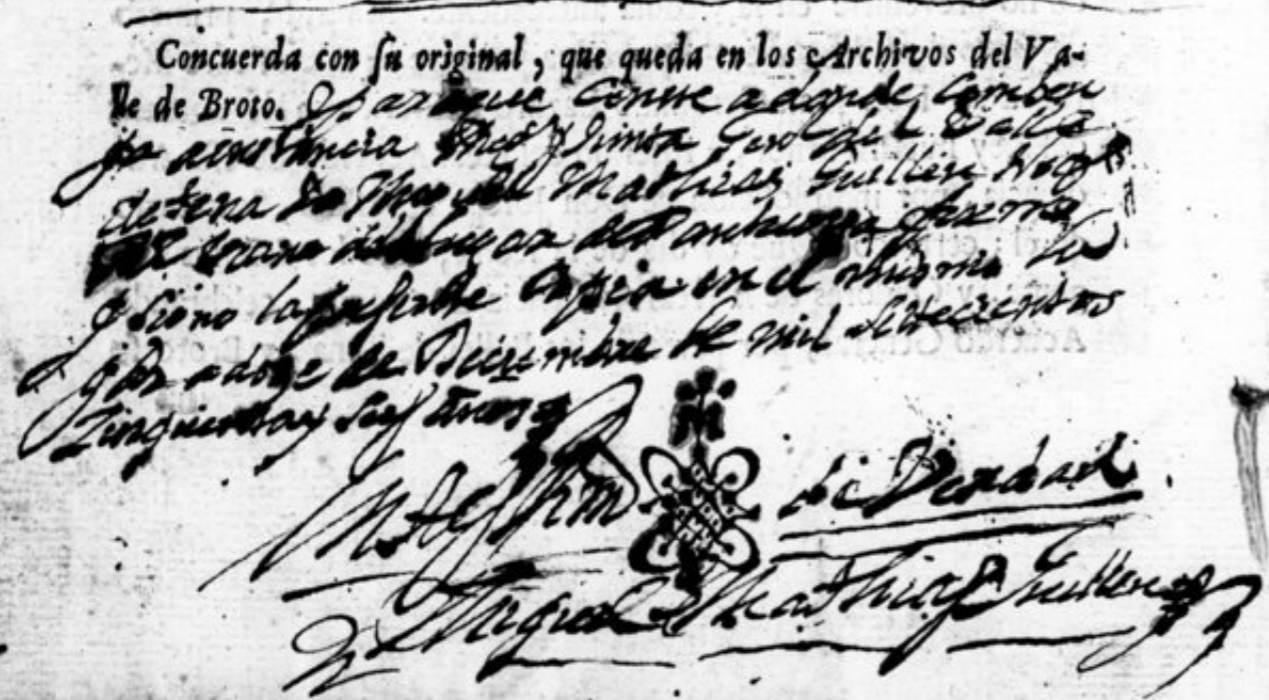 Concuerda con su original, que queda en los Archivos del Va-
lle de Broto. Y para que conste a donde comben
ga a instancia de la Junta Genl del Valle
de tena Yo Miguel Mathias Guillen Nott
Rl vezno del lugar de firme
y signo la presente Copia en el mismo lu
gar a doze de Deziembre de mil setecientos
Zinquenta y seys años
En testim de Verdad.
Miguel Mathias Guillen